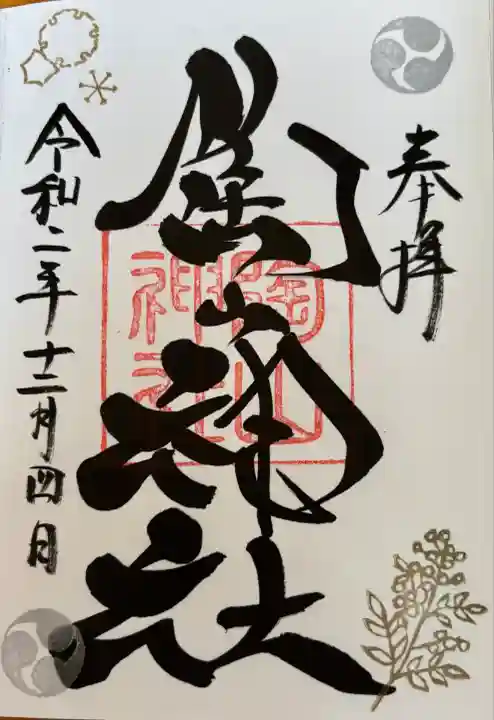 奉拝
陶山神社
陶山
神社
令和二年十二月四日